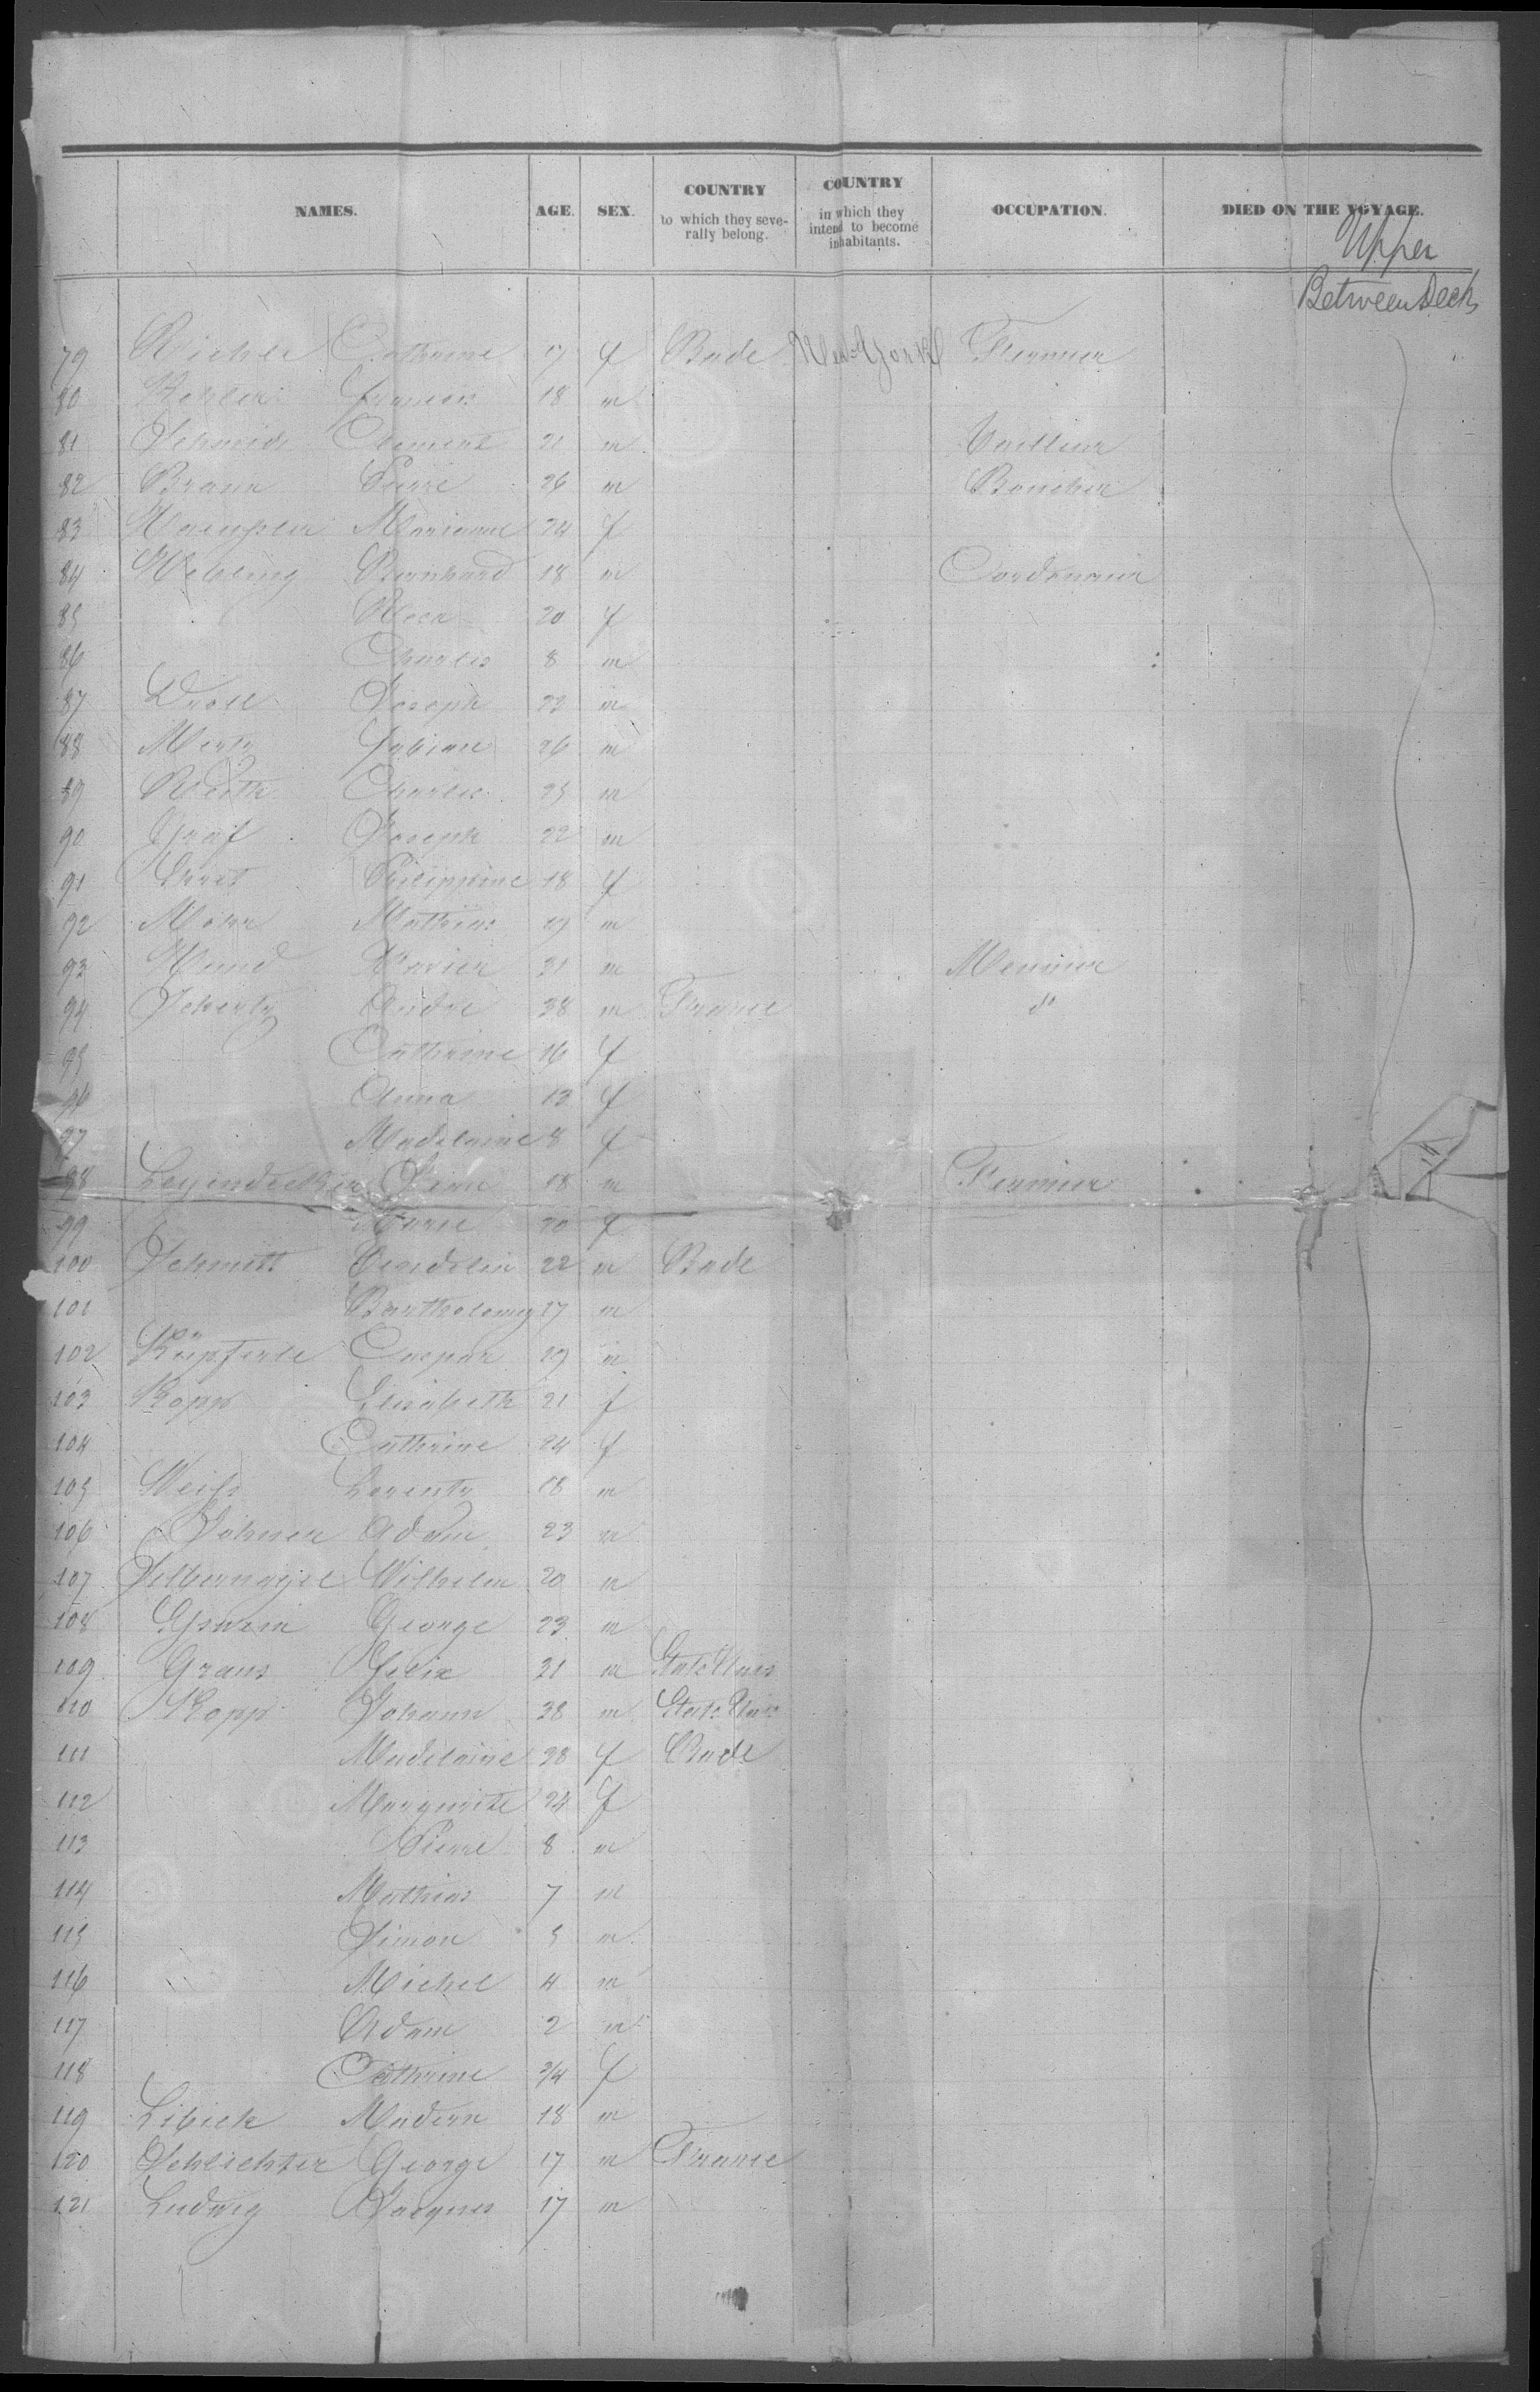 NAMES. AGE. SEX. COUNTRY to which they severally belong. COUNTRY in which they intend to become inhabitants. OCCUPATION. DIED ON THE VOYAGE.
Upper
Between Deck
79 Catherine 17 f Bade New York Fermier
80 François 18 m
81 Schmidt Clement 21 m Tailleur
82 Braun Pierre 26 m Boucher
83 Marianne 24 f
84 Bernhard 18 m Cordonnier
85 20 f
86 Charles 8 m
87 Droll Joseph 22 m
88 Mertz Fabian 26 m
89 Charles 25 m
90 Graf Joseph 22 m
91 Philippine 18 f
92 Mohr Mathias 19 m
93 Xavier 31 m Meunier
94 Scherty André 38 m France do
95 Catherine 16 f
96 Anna 13 f
97 Madelaine 8 f
98 Leyendecker 18 m Fermier
99 Marie 20 f
100 Schmitt Wendelin 22 m Bade
101 Bartholomey 27 m
102 Küpferle Caspar 19 m
103 Kopp Elisabeth 21 f
104 Cathrine 24 f
105 Weiss Lorentz 18 m
106 Johner Adam 23 m
107 Silbernagel Wilhelm 20 m
108 George 23 m
109 Felix 31 m States Unis
110 Kopp Johann 38 m Stats Unis
111 Madelaine 28 f Bade
112 Marguerite 24 f
113 Pierre 8 m
114 Mathias 7 m
115 Simon 5 m
116 Michel 4 m
117 Adam 2 m
118 Cathrine 3/4 f
119 Libich 18 m
120 Schlichter George 17 m France
121 Ludwig Jacques 17 m